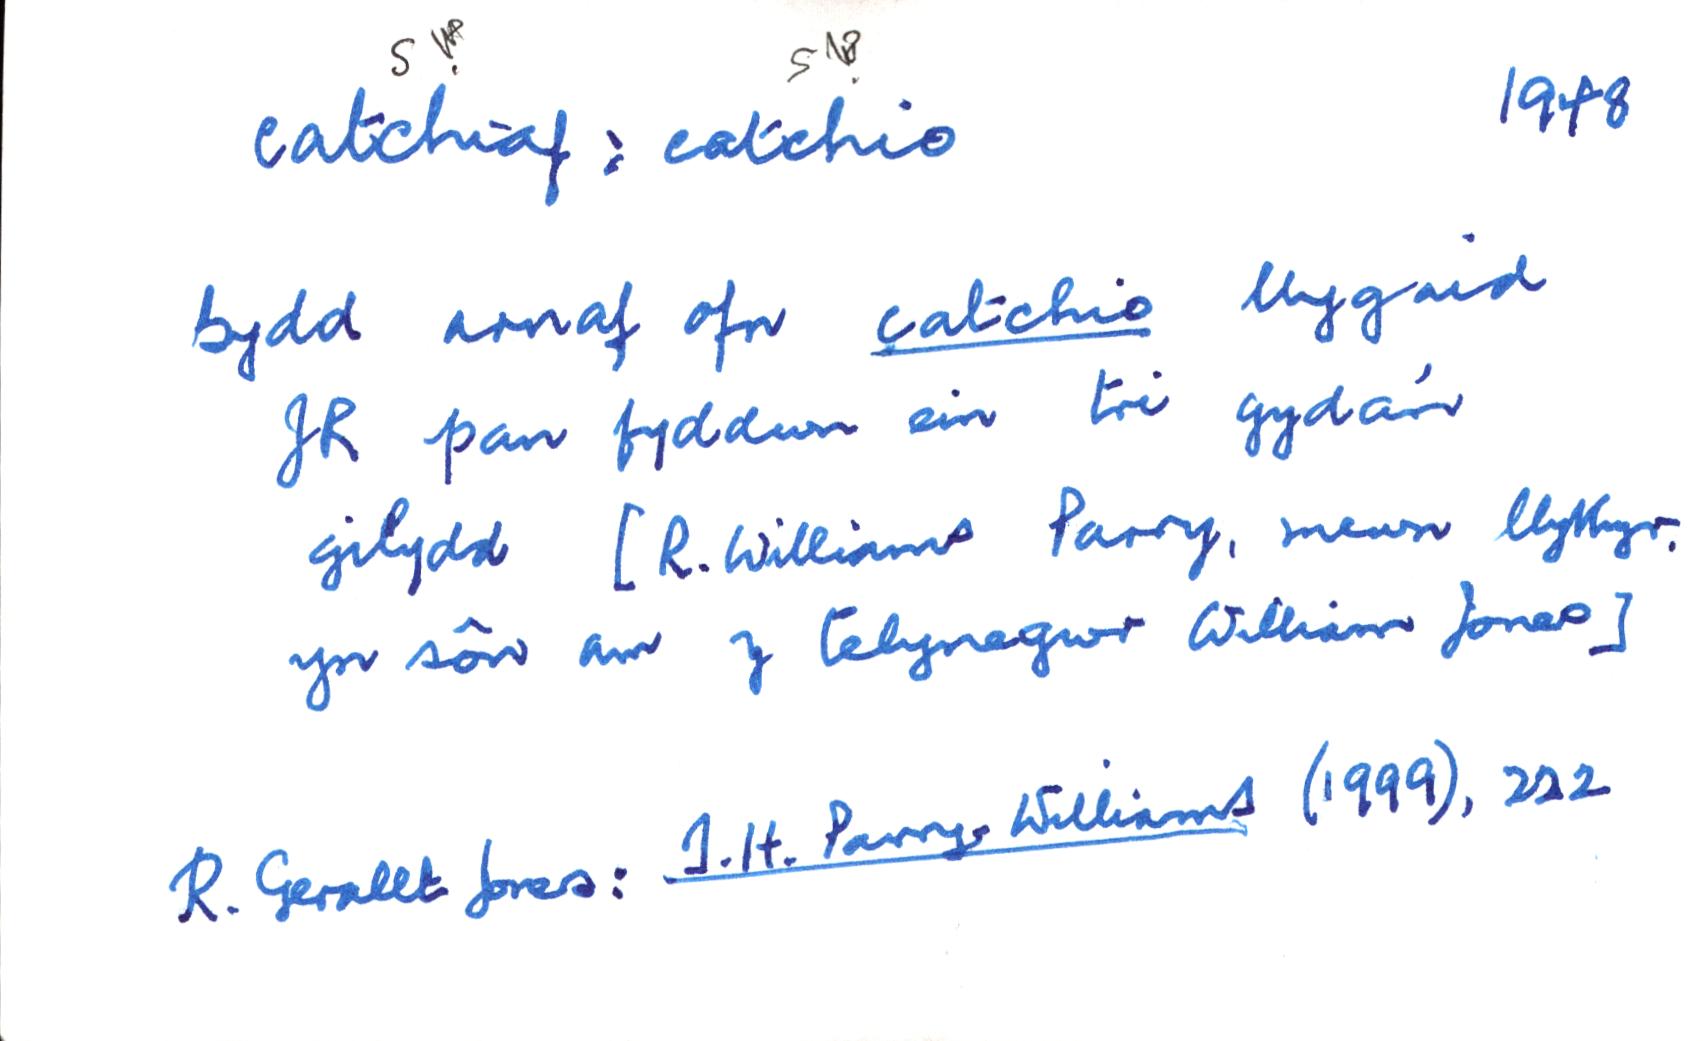 catchiaf : catchio 1948
bydd arnaf ofn catchio llygaid
JR pan fyddwn ein tri gyda'n
gilydd [R. Williams Parry, mewn llythyr,
yn sôn am y telynegwr William Jones]
R. Gerallt Jones: T.H. Parry-Williams (1999), 222